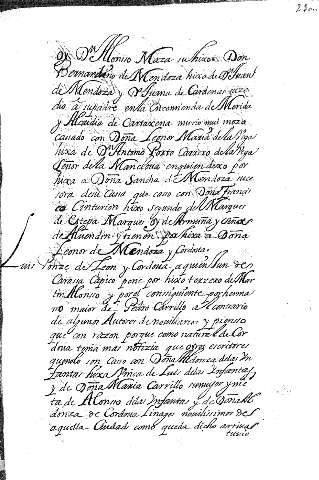 Dn Alonso Maza su hixo Don
Bernardino de Mendoza hixo de Dn Juan
de Mendoza y Da Juana de Cardenas
dio a su padre en la encomienda de Merida
y Alcaidia de Cartaxena murio mui mozo
casado con Doña Leonor Maria de la Vega
hixa de Dn Antonio Porto Carrero de la Vega
señor de la Monclova en quien dexo por
hixa a Doña Sancha de Mendoza suce
sora de su Casa que caso con Don Francisco
Centurion hixo segundo de Marques
de Estepa Marques de Armuña y Señor
de y tienen por hixa a Doña
Leonor de Mendoza y Cordova
Luis Ponze de Leon y Cordova a quien Juan de
Carasa Capico pone por hixo terzero de Mar
tin Alonso y por el consiguiente por herma
no maior de Pedro Carrillo a el contrario
de algunos Autores de noviliarios y pienso
que con razon porque como natural de Cor
dova tenia mas notizia que otros escritores
quando son caso con Doña Mencia de las In
fantas hixa Unica de Luis de las Infantas
y de Doña Maria Carrillo su mujer y nie
ta de Alonso de las Infantas y de Doña Al
donza de Cordova Linages novilissimos de
aquella Ciudad como queda dicho arriva